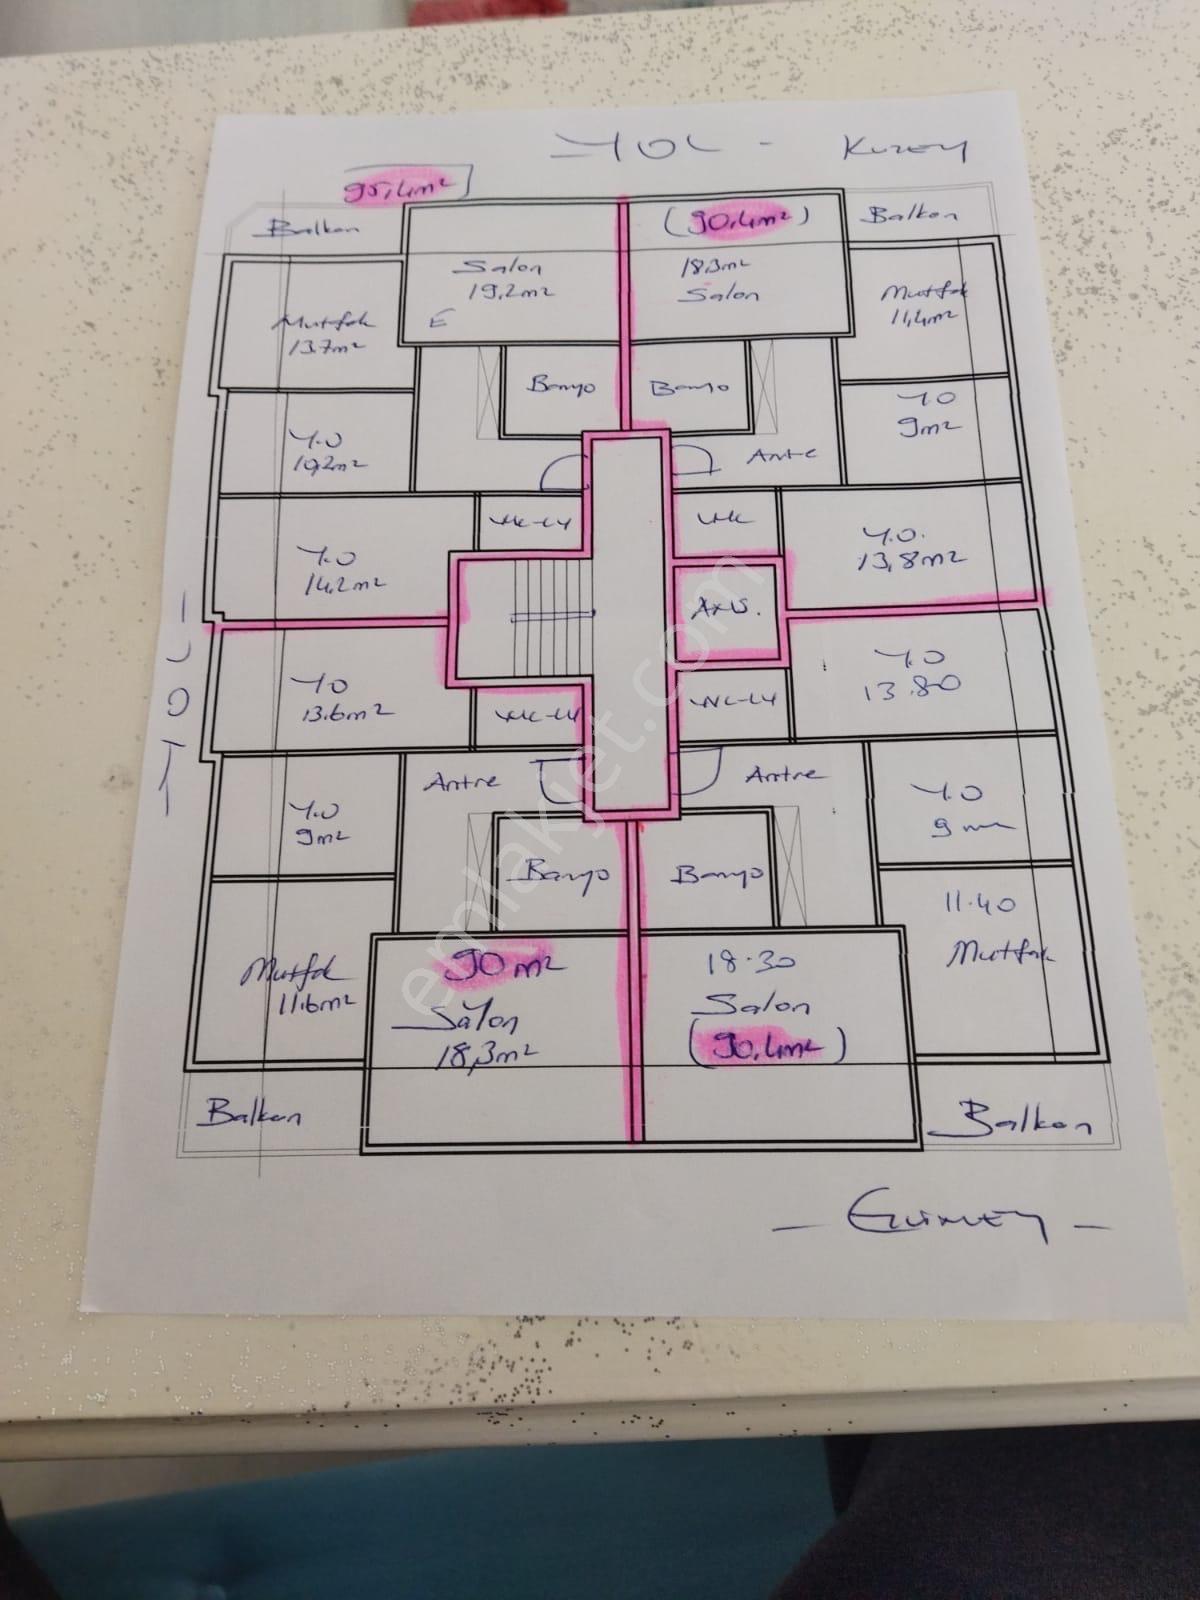 YOL - KUZEY
95,4m²
(90,4m²)
Balkon
Balkon
Salon
19,2m²
18,3m²
Salon
Mutfak
13.7m²
E
Mutfak
11,4m²
Banyo
Banyo
Y.O
10,2m²
YO
9m²
Antre
WC-LY
WC
Y.O
14,2m²
Y.O.
13,8m²
AXS.
YOL
YO
13.6m²
Y.O
13.80
WC-LY
WC-LY
Antre
Antre
Y.O
9m²
Y.O
9 m²
Banyo
Banyo
11.40
Mutfak
Mutfak
11.6m²
90m²
Salon
18,3m²
18.30
Salon
(90,4m²)
Balkon
Balkon
- GÜNEY -
emlakjet.com